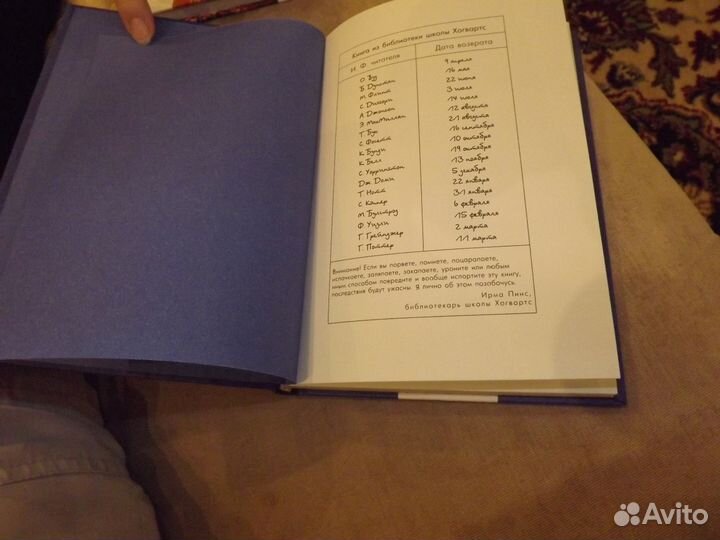 Книга из библиотеки школы Хогвартс
И. Ф. читателя Дата возврата
О. Вуд 9 апреля
Б. Дунстан 16 мая
М. Флинт 22 июня
С. Диггори 3 июля
А. Джонсон 14 июля
Э. МакМиллан 12 августа
21 августа
Т. Бут 16 сентября
С. Фосетт 10 октября
К. Бунзи 19 октября
К. Белл 13 ноября
С. Уоррингтон 5 декабря
Дж. Доки 22 января
Т. Нотт 31 января
С. Каппер 6 февраля
М. Булстроуд 15 февраля
Ф. Уизли 2 марта
Г. Грейнджер 11 марта
Г. Поттер
Внимание! Если вы порвете, помнете, поцарапаете,
испачкаете, заляпаете, закапаете, уроните или любым
иным способом повредите и вообще испортите эту книгу,
последствия будут ужасны. Я лично об этом позабочусь.
Ирма Пинс,
библиотекарь школы Хогвартс
Avito